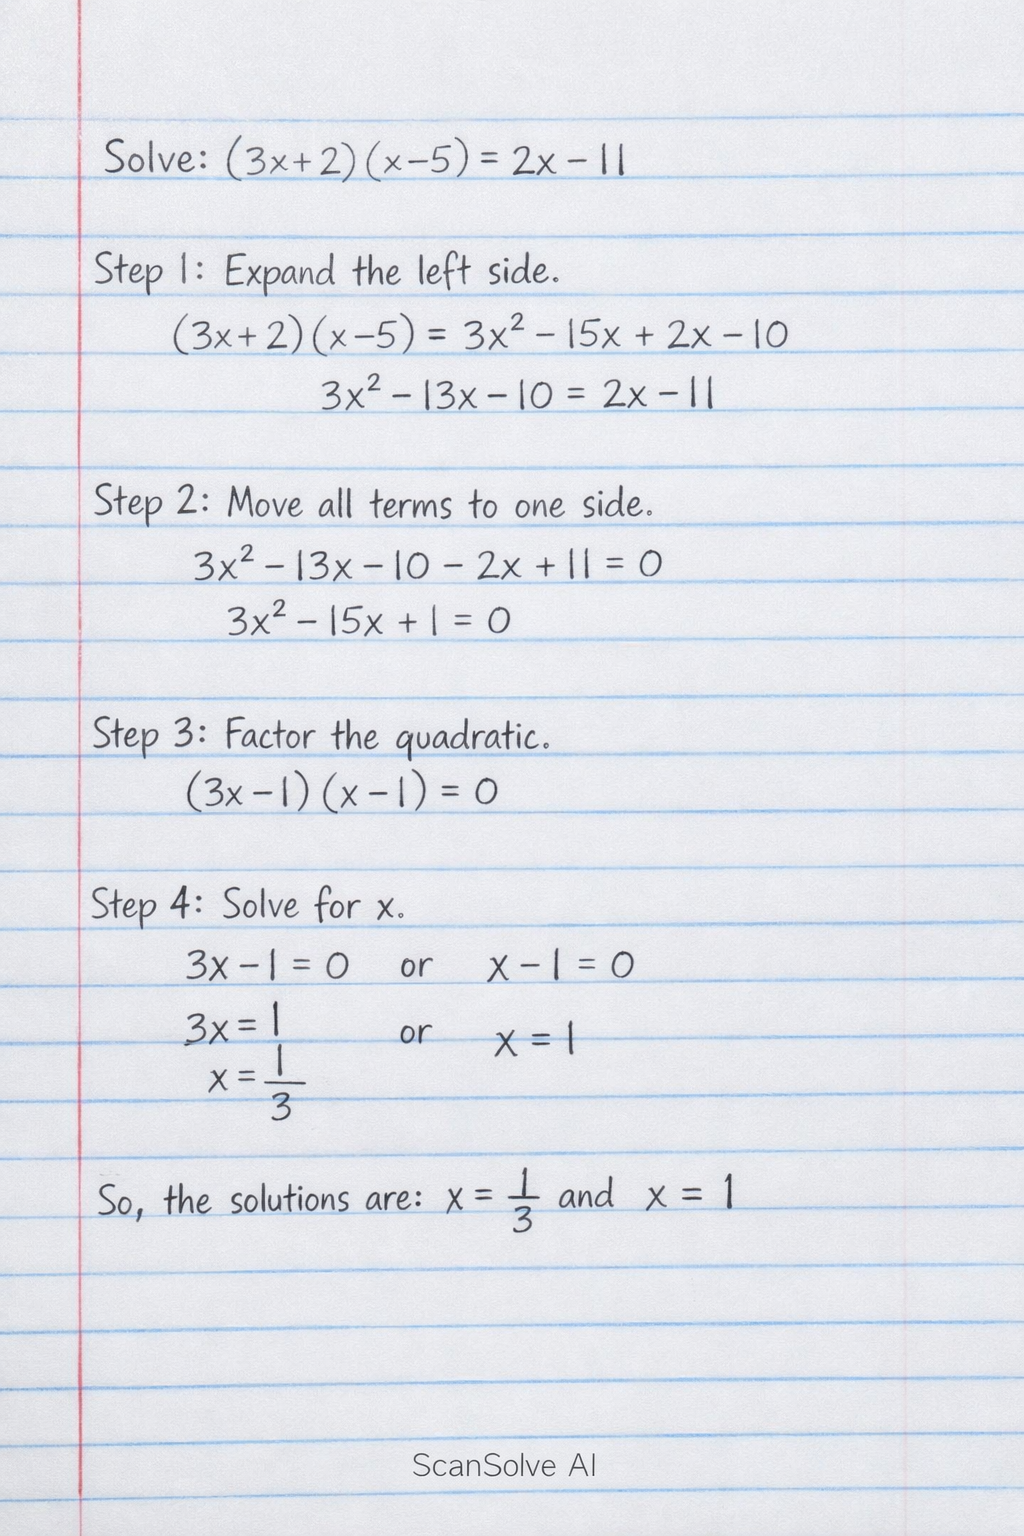 Solve: (3x+2)(x−5) = 2x − 11
Step 1: Expand the left side.
(3x+2)(x−5) = 3x² − 15x + 2x − 10
3x² − 13x − 10 = 2x − 11
Step 2: Move all terms to one side.
3x² − 13x − 10 − 2x + 11 = 0
3x² − 15x + 1 = 0
Step 3: Factor the quadratic.
(3x − 1)(x − 1) = 0
Step 4: Solve for x.
3x − 1 = 0 or x − 1 = 0
3x = 1 or x = 1
x = 1/3
So, the solutions are: x = 1/3 and x = 1
ScanSolve AI